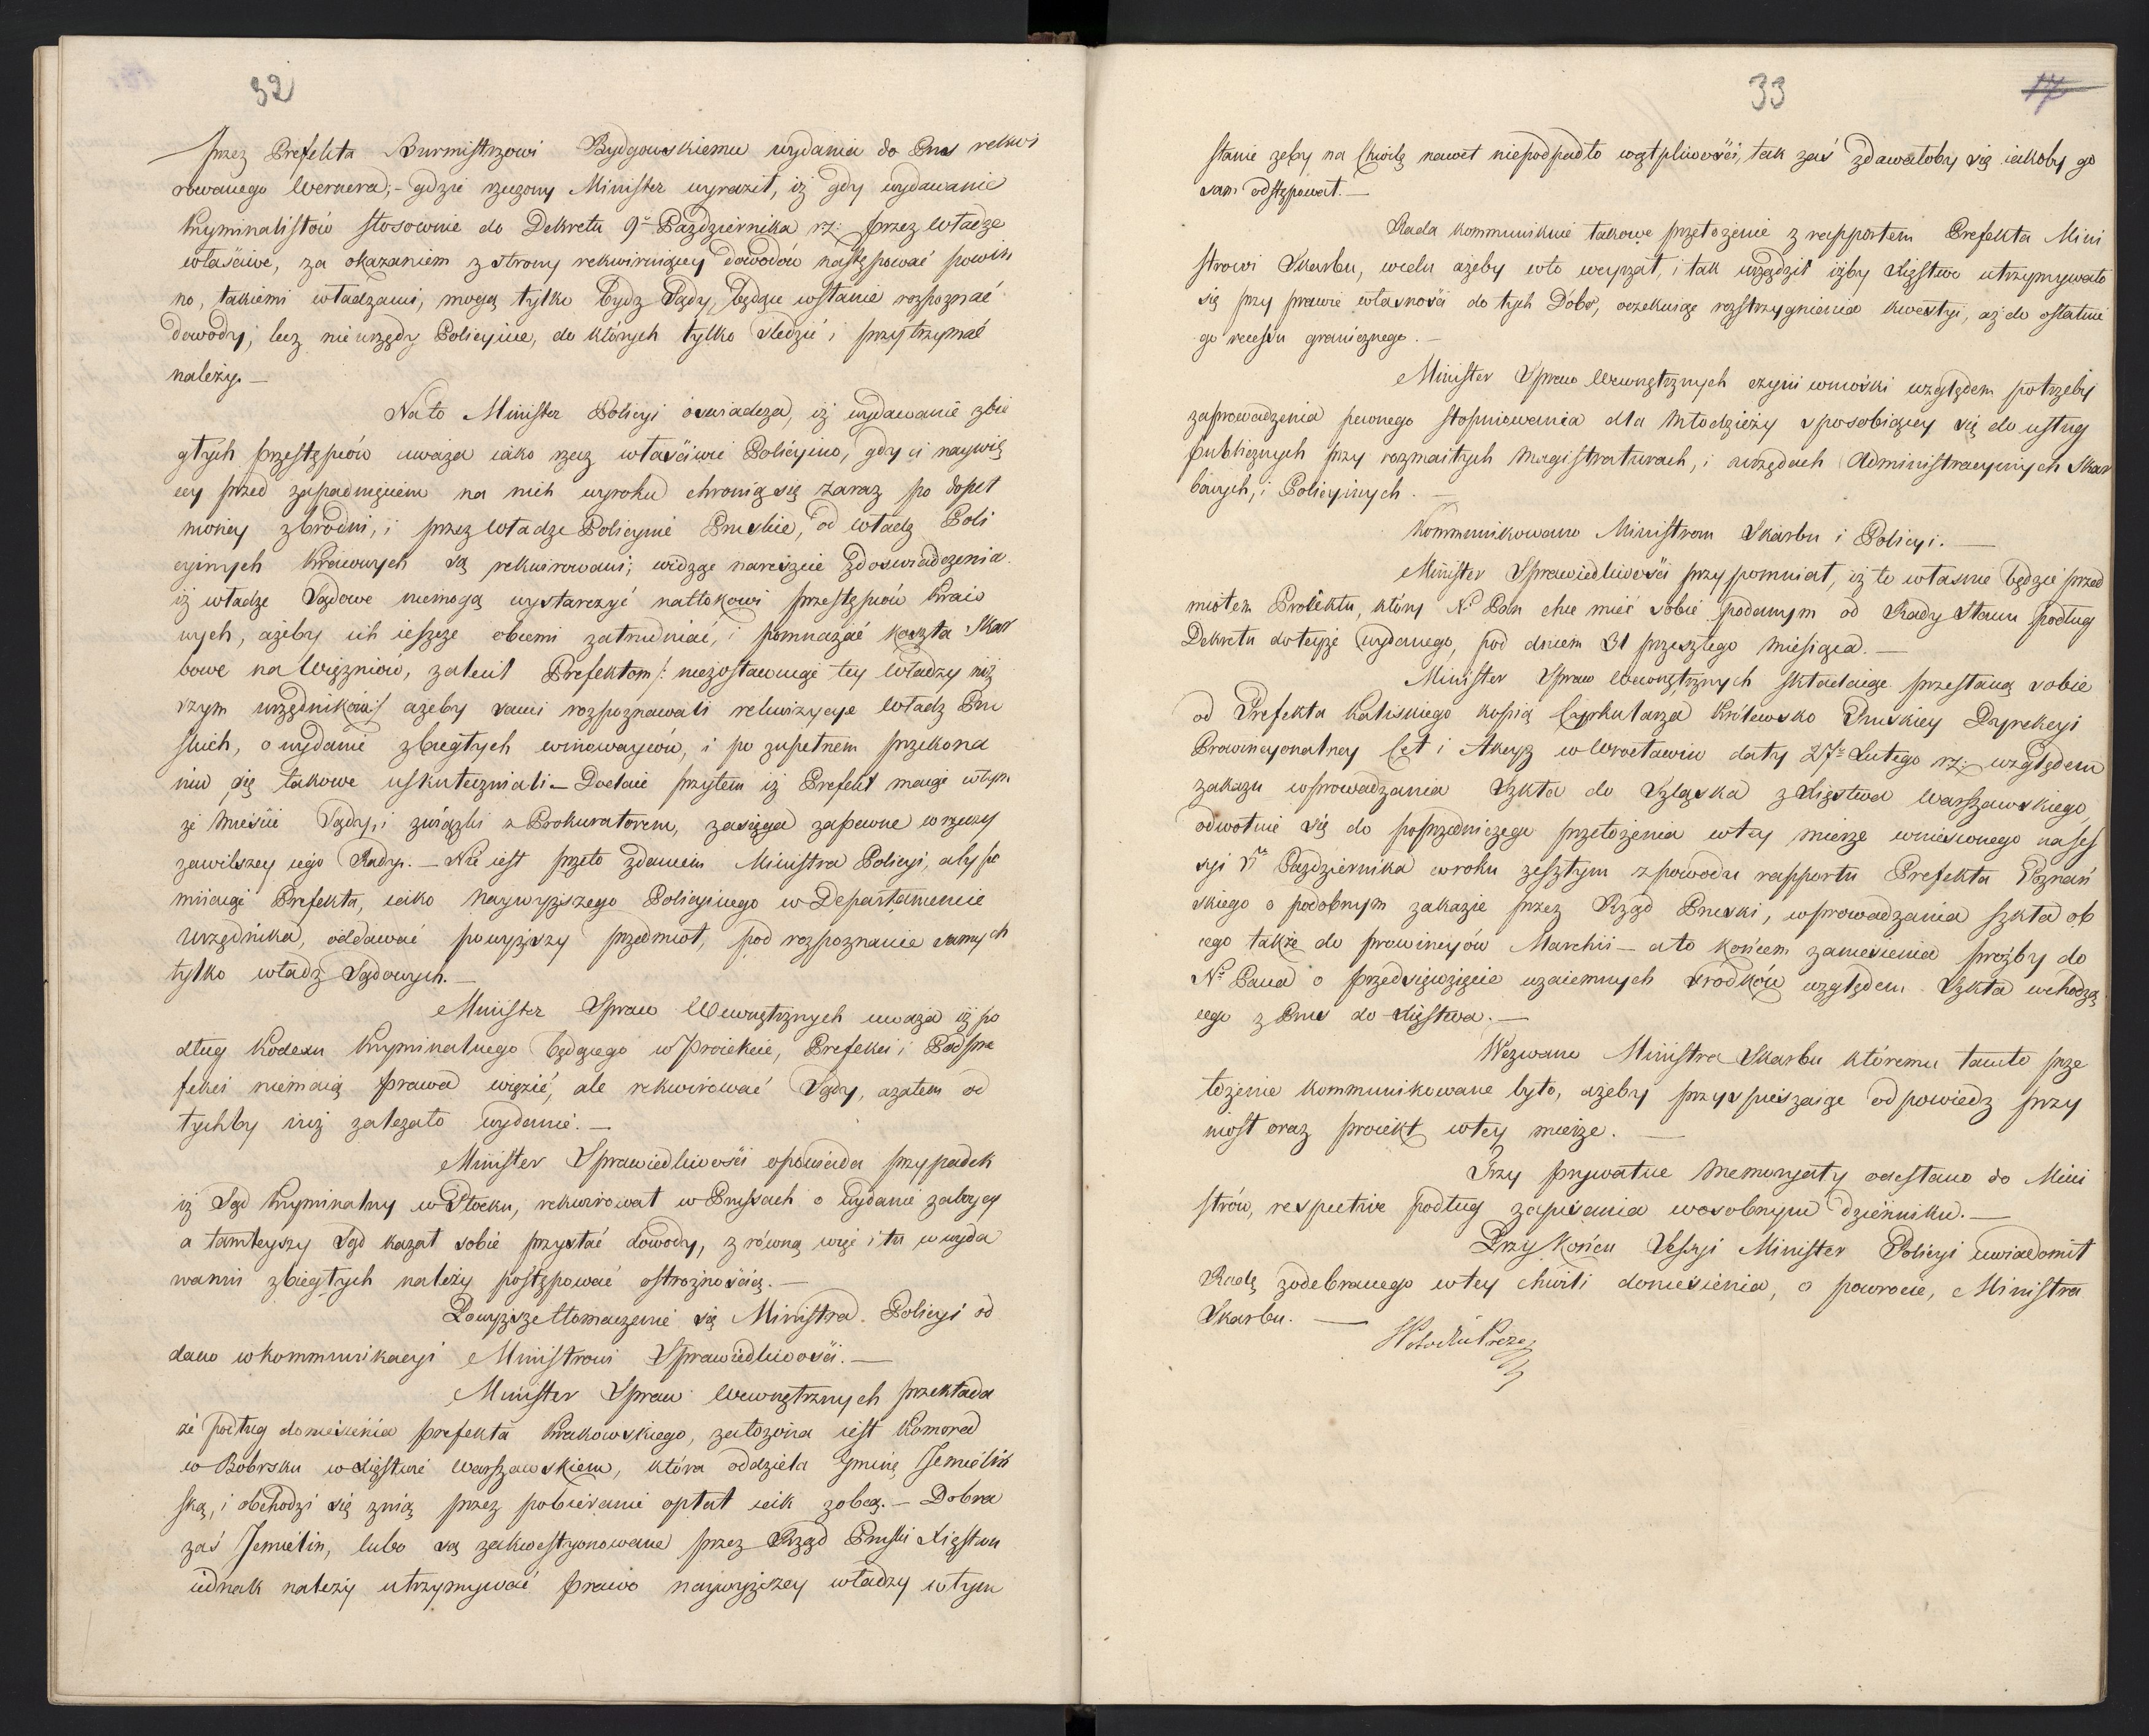 32
przez Prefekta Burmistrzowi Bydgowskiemu wydania do Prus rekwi
rowanego Wernera; - gdzie rzeczony Minister wyraził, iż gdy wydawanie
kryminalistów stosownie do Dekretu 9º Pazdziernika rz: przez władze
właściwe, za okazaniem z strony rekwiruiącey dowodów następować powin
no, takiemi władzami, mogą tylko bydz Sądy, będące wstanie rozpoznać
dowody; lecz nie urzędy Policyine, do których tylko sledzić i przytrzymać
należy. —
Na to Minister Policyi oswiadcza, iż wydawanie zbie
głych przestępców uważa iako rzecz właściwie Policyino, gdy ci naywię
cey przed zapadnięciem na nich wyroku chronią się zaraz po dopeł
nioney zbrodni, i przez władze Policyine Pruskie, od władz Poli
cyinych kraiowych są rekwirowani; widząc nareszcie zdoswiadczenia
iż władze Sądowe niemogą wystarczyć natłokowi przestępców kraio
wych, ażeby ich ieszcze obcemi zatrudniać, i pomnażać koszta Skar
bowe na więzniów, zalecił Prefektom /: niezostawuiąc tey władzy niż
szym urzędnikom :/ ażeby sami rozpoznawali rekwizycye władz Pru
skich, o wydanie zbiegłych winowayców, i po zupełnem przekona
niu się takowe uskuteczniali. — Dodaie przytem iż Prefekt maiąc wtym
że mieście Sądy, i związki z Prokuratorem, zasięga zapewne w rzeczy
zawilszey iego Rady. — Nie iest przeto zdaniem Ministra Policyi, aby po
miiaiąc Prefekta, iako naywyższego Policyinego w Departamencie
Urzędnika, oddawać powyższy przedmiot, pod rozpoznanie samych
tylko władz Sądowych. —
Minister Spraw Wewnętrznych uważa iż po
dług Kodexu Kryminalnego będącego w Proiekcie, Prefekci i Podpre
fekci niemaią prawa więzić, ale rekwirować Sądy, azatem od
tychby iuż zależało wydanie. —
Minister Sprawiedliwości opowiada przypadek
iż Sąd Kryminalny w Płocku, rekwirował w Prusach o wydanie zabóycy
a tamteyszy Sąd kazał sobie przysłać dowody, z równą więc i tu w wyda
waniu zbiegłych należy postępować ostrożnością. —
Powyższe tłomaczenie się Ministra Policyi od
dano w kommunikacyi Ministrowi Sprawiedliwości. —
Minister Spraw Wewnętrznych przekłada
że podług doniesienia prefekta Krakowskiego, założona iest Komora
w Bobrsku w Xięstwie Warszawskiem, która oddziela Gminę Jemieliń
ską, i obchodzi się znią przez pobieranie opłat iak zobcą. — Dobra
zaś Jemielin, lubo są zakwestyonowane przez Rząd Pruski Xięstwu
iednak należy utrzymywać prawo naywyższey władzy wtym
33
17
stanie żeby na chwilę nawet niepodpadło wątpliwości, tak zaś zdawałoby się iakoby go
sam odstępował. —
Rada kommunikuie takowe przełożenie z rapportem Prefekta Mini
strowi Skarbu, wcelu ażeby wto weyrzał, i tak urządził iżby Xięstwo utrzymywało
się przy prawie własności do tych Dóbr, oczekuiąc rozstrzygnienia kwestyi, aż do ostatnie
go recessu granicznego. —
Minister Spraw Wewnętrznych czyni wnioski względem potrzeby
zaprowadzenia pewnego stopniowania dla młodzieży sposobiącey się do usług
publicznych przy rozmaitych Magistraturach, i urzędach Administracyinych Skar
bowych, i Policyinych. —
Kommunikowano Ministrom Skarbu i Policyi. —
Minister Sprawiedliwości przypomniał, iż to własnie będzie przed
miotem Proiektu, który N. Pan chce mieć sobie podanym od Rady Stanu podług
Dekretu doteyże wydanego, pod dniem 31 przeszłego miesiąca. —
Minister Spraw Wewnętrznych składaiąc przesłaną sobie
od Prefekta Kaliskiego kopią Cyrkularza Królewsko Pruskiey Dyrekcyi
Prowincyonalney Ceł i Akcyz w Wrocławiu daty 27º Lutego rz: względem
zakazu wprowadzania Szkła do Szląska z Xięstwa Warszawskiego,
odwołuie się do poprzedniczego przełożenia wtey mierze wniesionego na ses
syi Pazdziernika w roku zeszłym z powodu rapportu Prefekta Poznań
skiego o podobnym zakazie przez Rząd Pruski, wprowadzania szkła ob
cego także do prowincyów Marchii — a to końcem zaniesienia prośby do
Nº Pana o przedsięwzięcie wzaiemnych srodków względem Szkła wchodzą
cego z Prus do Xięstwa. —
Wezwano Ministra Skarbu któremu tamto prze
łożenie kommunikowane było, ażeby przyspieszaiąc odpowiedz przy
niosł oraz proiekt wtey mierze. —
Trzy prywatne memoryały odesłano do Mini
strów, respective podług zapisania wosobnym dzienniku. —
Przy końcu Sessyi Minister Policyi uwiadomił
Radę zodebranego wtey chwili doniesienia, o powrocie, Ministra
Skarbu. —